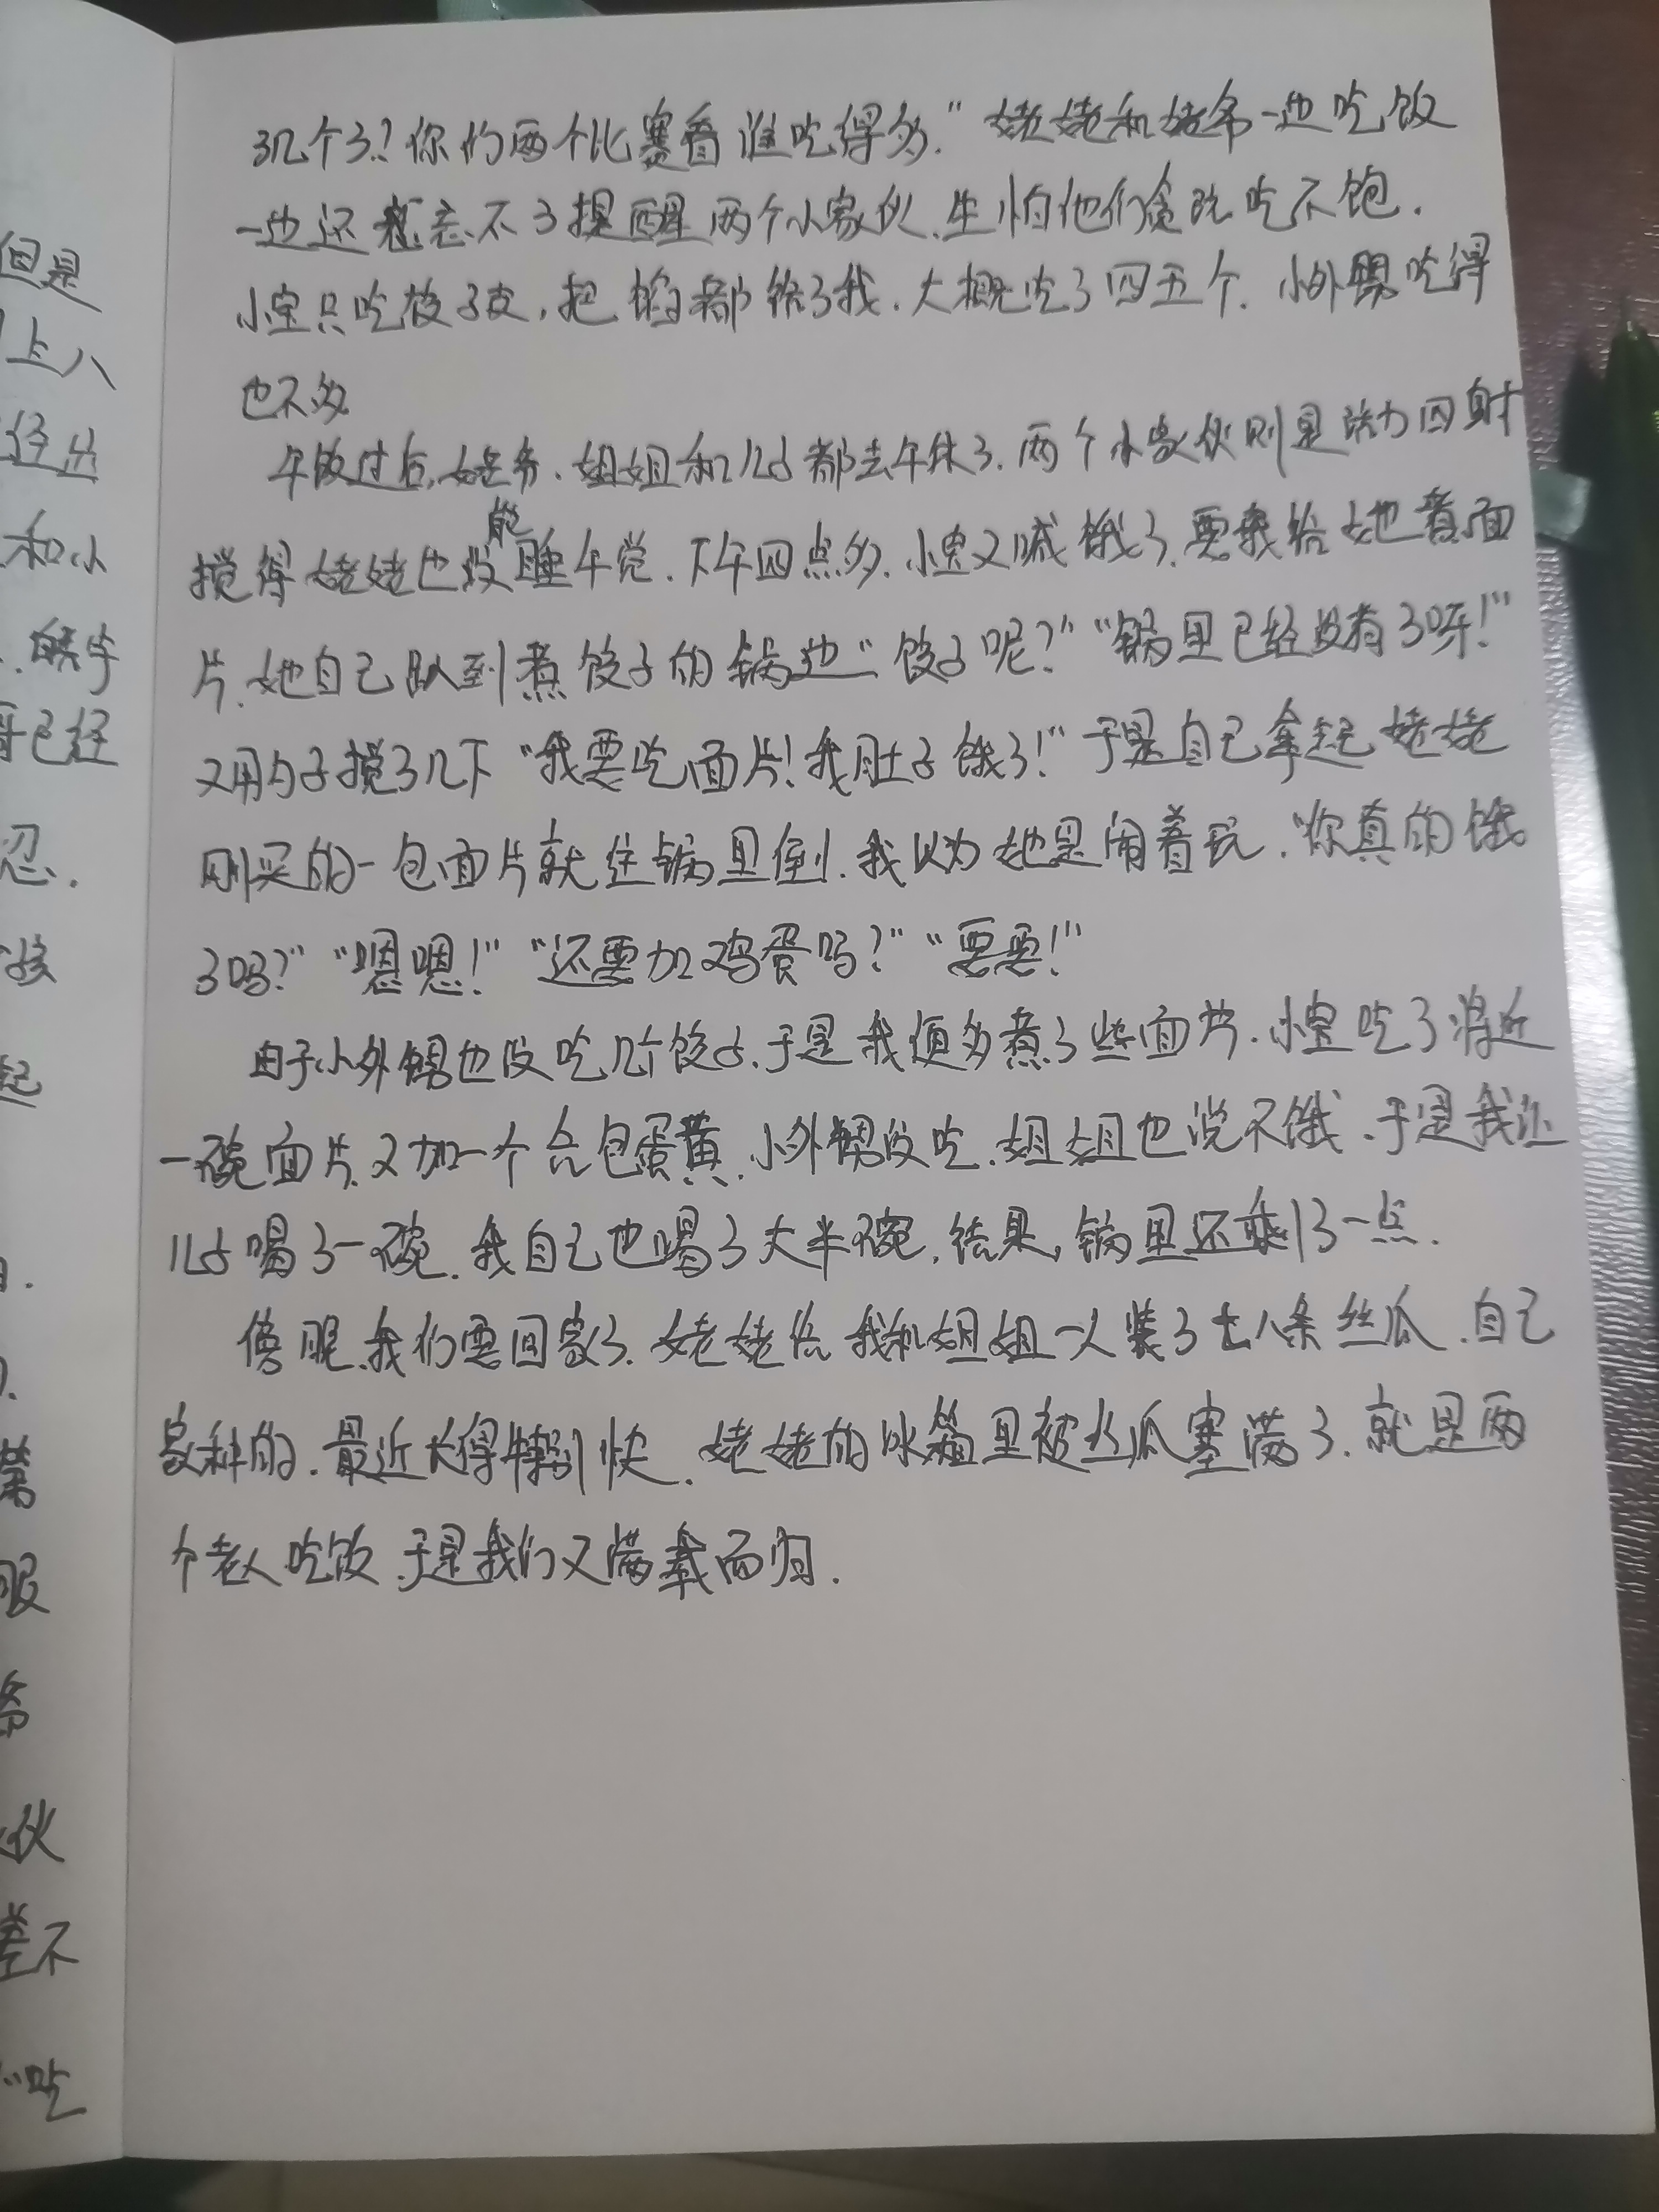 了几个了？你们两个比赛看谁吃得多。”姥姥和姥爷一边吃饭
一边还忘不了提醒两个小家伙，生怕他们贪玩吃不饱。
小宝只吃饺子皮，把馅都给了我，大概吃了四五个。小外甥吃得
也不多
午饭过后，姥爷、姐姐和儿子都去午休了，两个小家伙则是活力四射
搅得姥姥也没能睡午觉。下午四点多，小宝又喊饿了，要我给她煮面
片，她自己趴到煮饺子的锅边“饺子呢？”“锅里已经没有了呀！”
又用勺子搅了几下“我要吃面片！我肚子饿了！”于是自己拿起姥姥
刚买的一包面片就往锅里倒，我以为她是闹着玩，“你真的饿
了吗？”“嗯嗯！”“还要加鸡蛋吗？”“要要！”
由于小外甥也没吃几个饺子，于是我便多煮了些面片，小宝吃了将近
一碗面片，又加一个荷包蛋黄，小外甥没吃，姐姐也说不饿，于是我让
儿子喝了一碗，我自己也喝了大半碗，结果，锅里还剩了一点。
傍晚，我们要回家了，姥姥给我和姐姐一人装了七八条丝瓜，自己
家种的，最近长得特别快，姥姥的冰箱里被丝瓜塞满了，就是两
个老人吃饭，于是我们又满载而归。
但是
上八
经出
和小
已经
忍。
孩
起
服
伙
差不
“吃